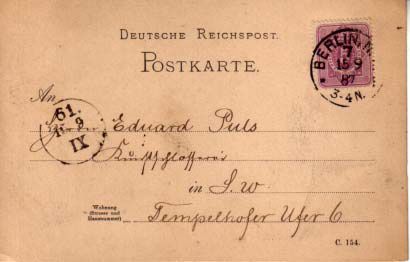 DEUTSCHE REICHSPOST.
POSTKARTE.
BERLIN. N.
7
15 9
87
3-4 N.
An
61.
9
IX
Eduard Puls
Kunstschlosserei
in S. W
Wohnung
(Strasse und
Hausnummer)
Tempelhofer Ufer 6
C. 154.